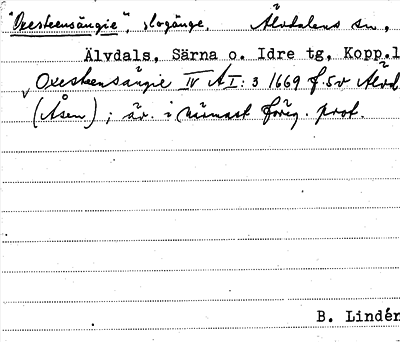 "Oxesteensängie", slogänge. Älvdalens sn,
Älvdals, Särna o. Idre tg, Kopp.l
Oxesteensängie IV A I: 3 1669 f.5v Älvd
(Åsen); äv. i närmast föreg. prot.
B. Lindén